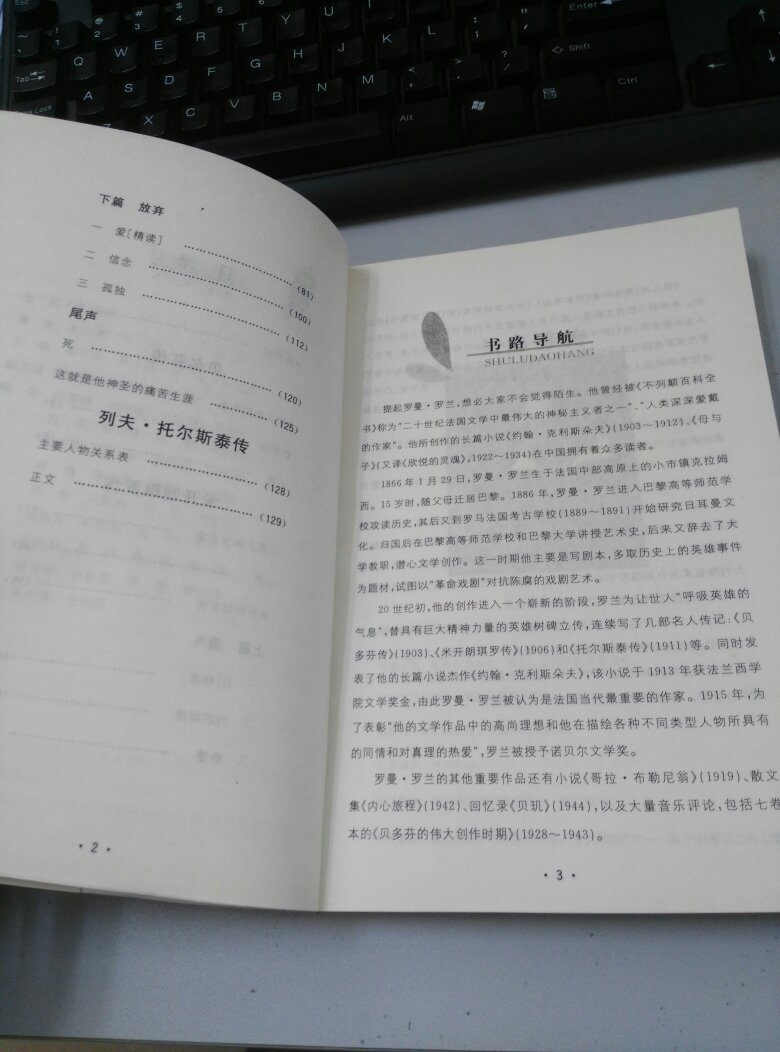 Esc
@
2
#
3
$
4
%
5
Q W E R T Y U I
A S D F G H J K L
Z X C V B N M
Tab
Enter
Shift
Alt
Ctrl
下篇 放弃
一 爱[精读] (81)
二 信念 (100)
三 孤独 (112)
尾声
死 (120)
这就是他神圣的痛苦生涯 (125)
列夫·托尔斯泰传
主要人物关系表 (128)
正文 (129)
· 2 ·
书路导航
SHULUDAOHANG
提起罗曼·罗兰,想必大家不会觉得陌生。他曾经被《不列颠百科全
书》称为“二十世纪法国文学中最伟大的神秘主义者之一”、“人类深深爱戴
的作家”。他所创作的长篇小说《约翰·克利斯朵夫》(1903~1912)、《母与
子》(又译《欣悦的灵魂》,1922~1934)在中国拥有着众多读者。
1866年1月29日,罗曼·罗兰生于法国中部高原上的小市镇克拉姆
西。15岁时,随父母迁居巴黎。1886年,罗曼·罗兰进入巴黎高等师范学
校攻读历史,其后又到罗马法国考古学校(1889~1891)开始研究日耳曼文
化。归国后在巴黎高等师范学校和巴黎大学讲授艺术史,后来又辞去了大
学教职,潜心文学创作。这一时期他主要是写剧本,多取历史上的英雄事件
为题材,试图以“革命戏剧”对抗陈腐的戏剧艺术。
20世纪初,他的创作进入一个崭新的阶段,罗兰为让世人“呼吸英雄的
气息”,替具有巨大精神力量的英雄树碑立传,连续写了几部名人传记:《贝
多芬传》(1903)、《米开朗琪罗传》(1906)和《托尔斯泰传》(1911)等。同时发
表了他的长篇小说杰作《约翰·克利斯朵夫》,该小说于1913年获法兰西学
院文学奖金,由此罗曼·罗兰被认为是法国当代最重要的作家。1915年,为
了表彰“他的文学作品中的高尚理想和他在描绘各种不同类型人物所具有
的同情和对真理的热爱”,罗兰被授予诺贝尔文学奖。
罗曼·罗兰的其他重要作品还有小说《哥拉·布勒尼翁》(1919)、散文
集《内心旅程》(1942)、回忆录《贝玑》(1944),以及大量音乐评论,包括七卷
本的《贝多芬的伟大创作时期》(1928~1943)。
· 3 ·